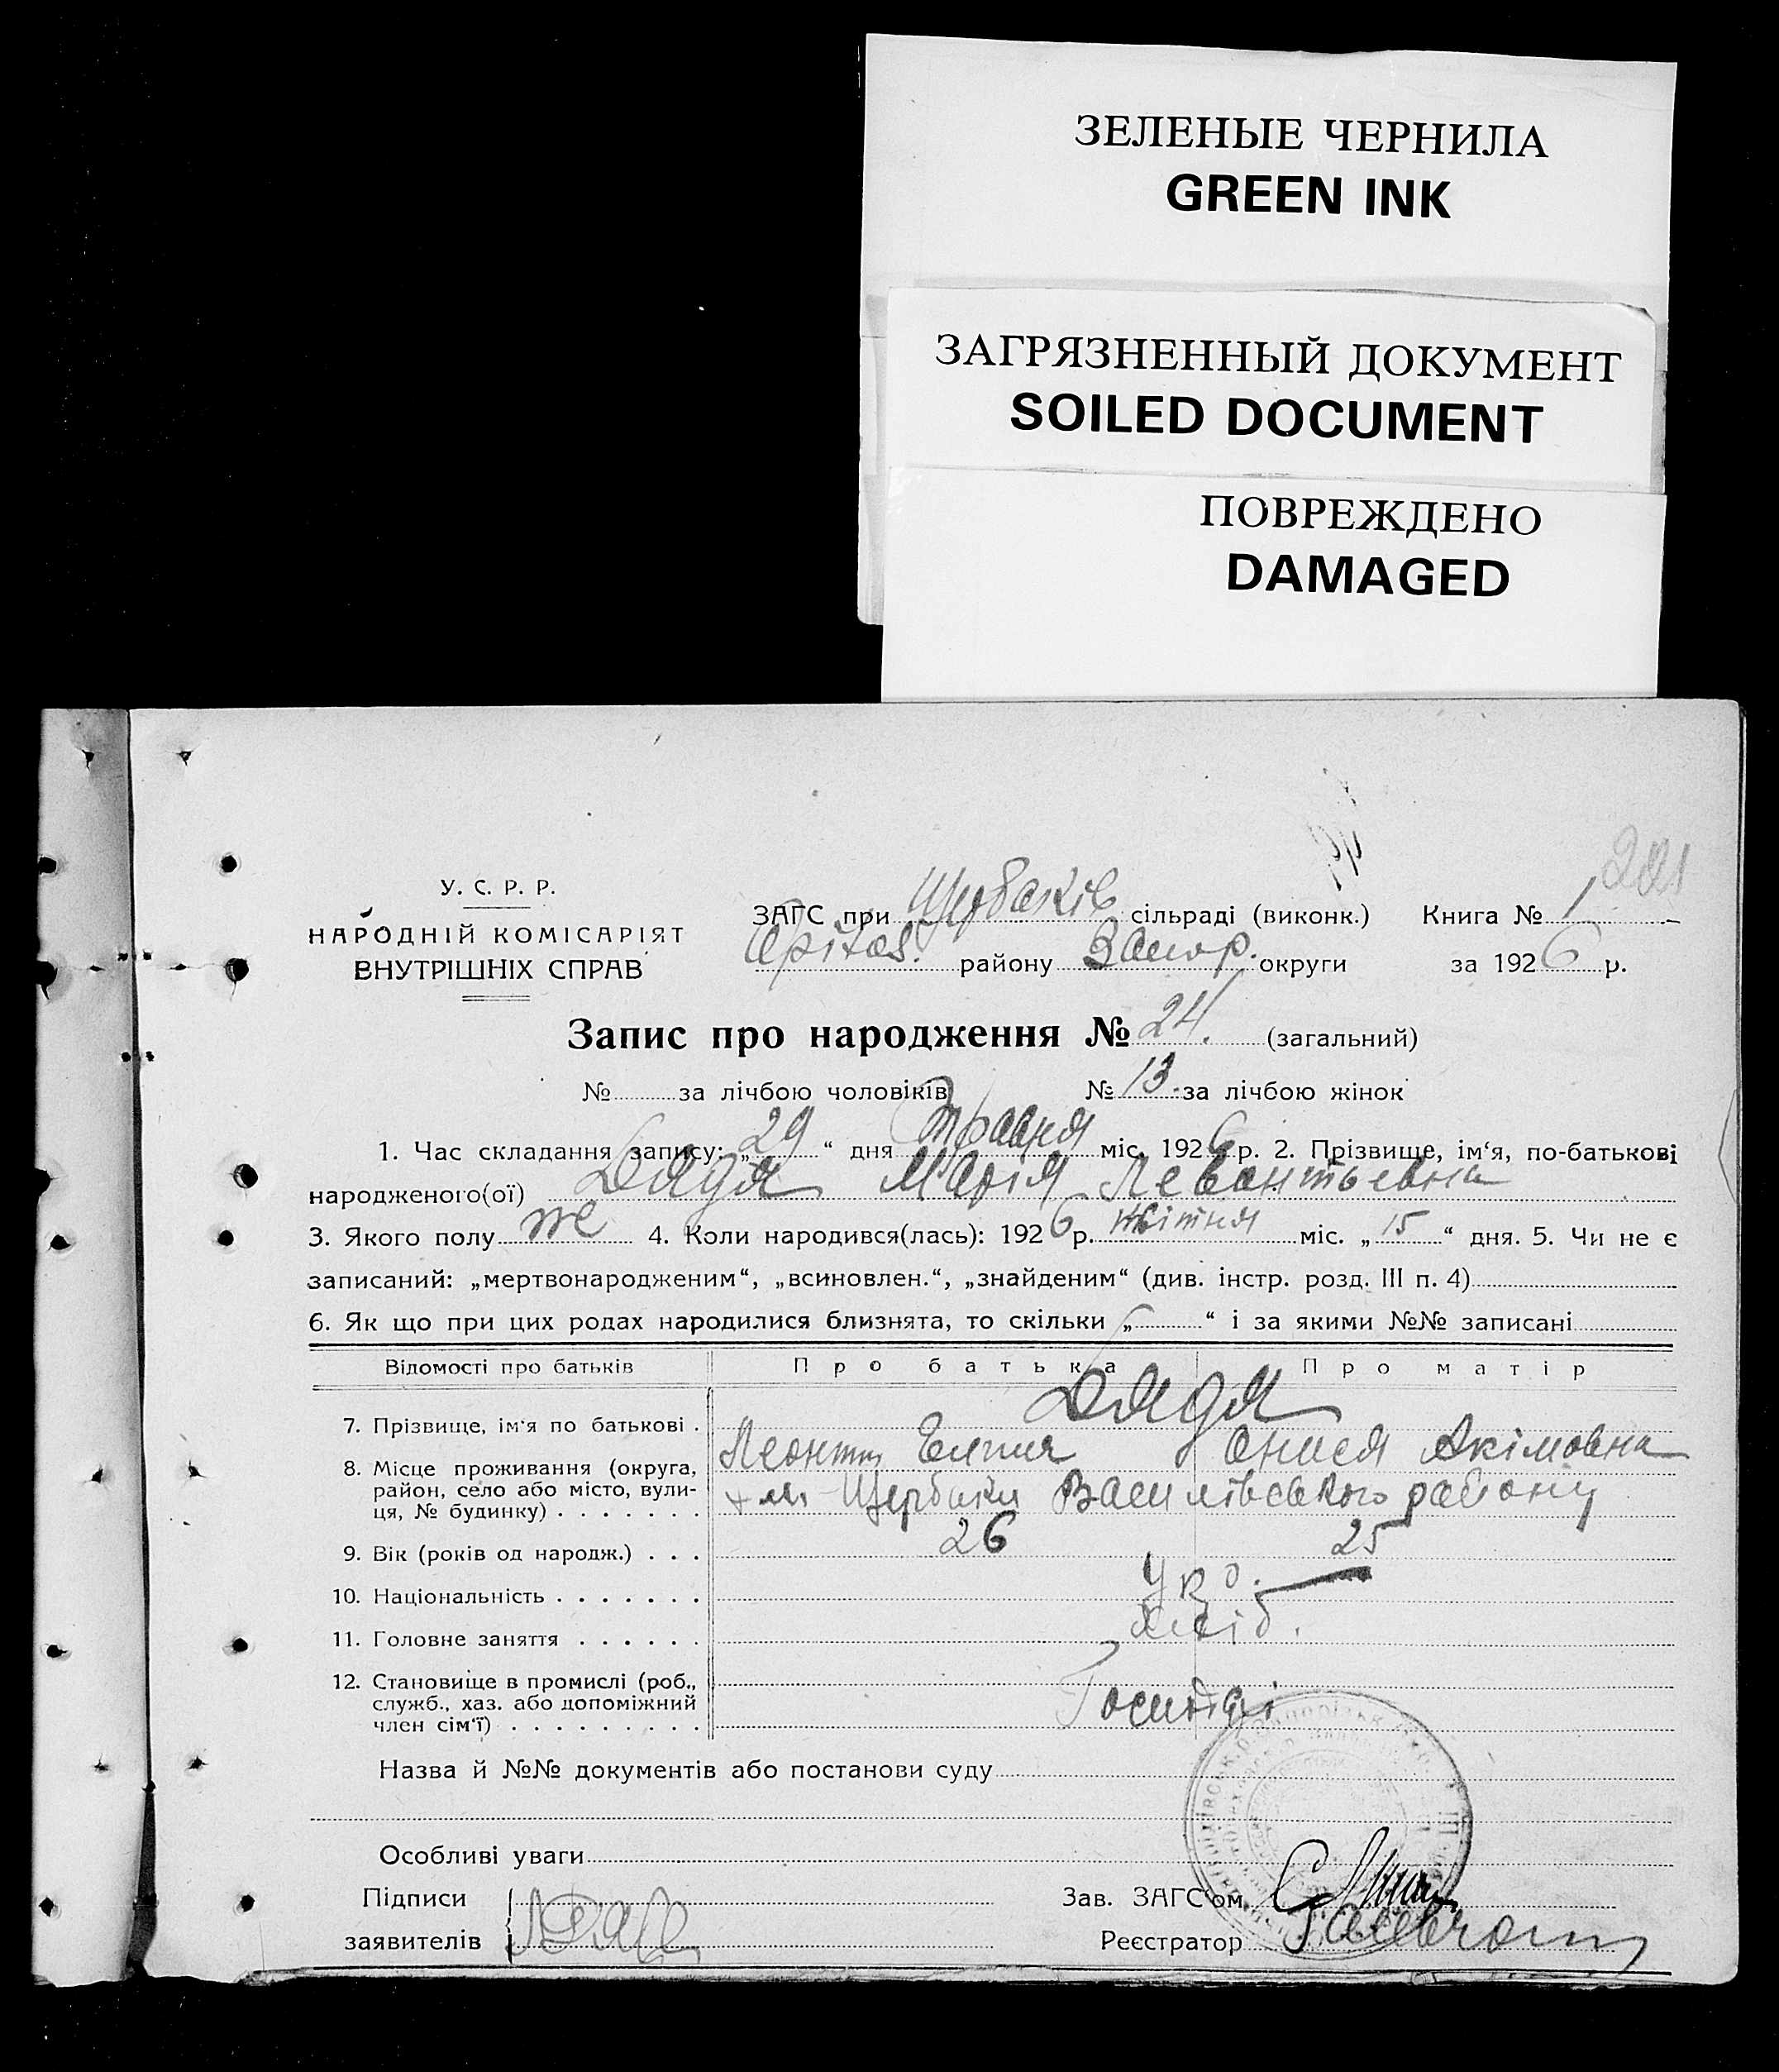 ЗЕЛЕНЫЕ ЧЕРНИЛА
GREEN INK
ЗАГРЯЗНЕННЫЙ ДОКУМЕНТ
SOILED DOCUMENT
ПОВРЕЖДЕНО
DAMAGED
221
У. С. Р. Р.
НАРОДНІЙ КОМІСАРІЯТ
ВНУТРІШНІХ СПРАВ
ЗАГС при Щербаків сільраді (виконк.) Книга № 1
Оріхов. району Запор. округи за 1926 р.
Запис про народження № 24. (загальний)
№ за лічбою чоловіків № 13. за лічбою жінок
1. Час складання запису: „29“ дня Травня міс. 1926 р. 2. Прізвище, ім‘я, по-батькові
народженого(ої) Дядя Марія Левонтьевна
3. Якого полу же 4. Коли народився(лась): 1926 р. квітня міс. „15“ дня. 5. Чи не є
записаний: „мертвонародженим“, „всиновлен.“, „знайденим“ (див. інстр. розд. III п. 4)
6. Як що при цих родах народилися близнята, то скільки „ “ і за якими №№ записані
Відомості про батьків Про батька Про матір
7. Прізвище, ім‘я по батькові . Дядя
Леонтій Онися Акімовна
8. Місце проживання (округа, район, село або місто, вулиця, № будинку) . . . . . . . Щербаки Василівського району
9. Вік (років од народж.) . . . 26 25
10. Національність . . . . . . . Укр.
11. Головне заняття . . . . . . хлід.
12. Становище в промислі (роб., служб., хаз. або допоміжний член сім‘ї) . . . . . . . . .
Назва й №№ документів або постанови суду
Особливі уваги
Підписи
заявителів
Зав. ЗАГС‘ом
Реєстратор